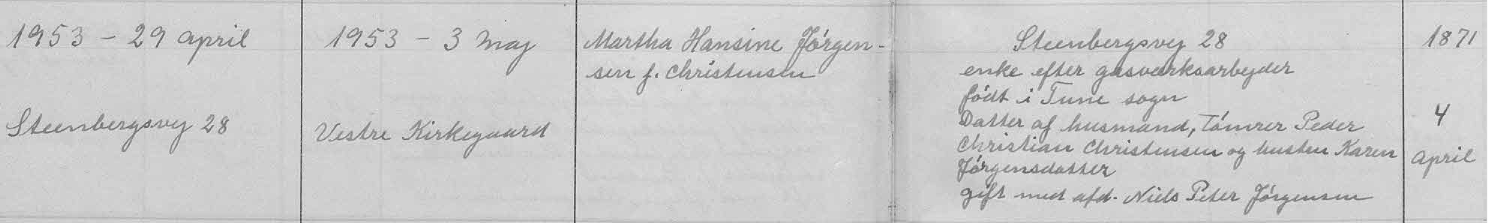 1953 - 29 april
Steenbergsvej 28
1953 - 3 maj
Vestre Kirkegaard
Martha Hansine Jörgen-
sen f. Christensen
Steenbergsvej 28
enke efter gasværksarbejder
födt i Tune sogn
Datter af husmand, Tömrer Peder
Christian Christensen og hustru Karen
Jörgensdatter
gift med afd. Niels Peter Jörgensen
1871
4
april